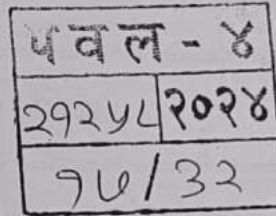 पवल - ४
२१२५८ २०२४
१७/३२